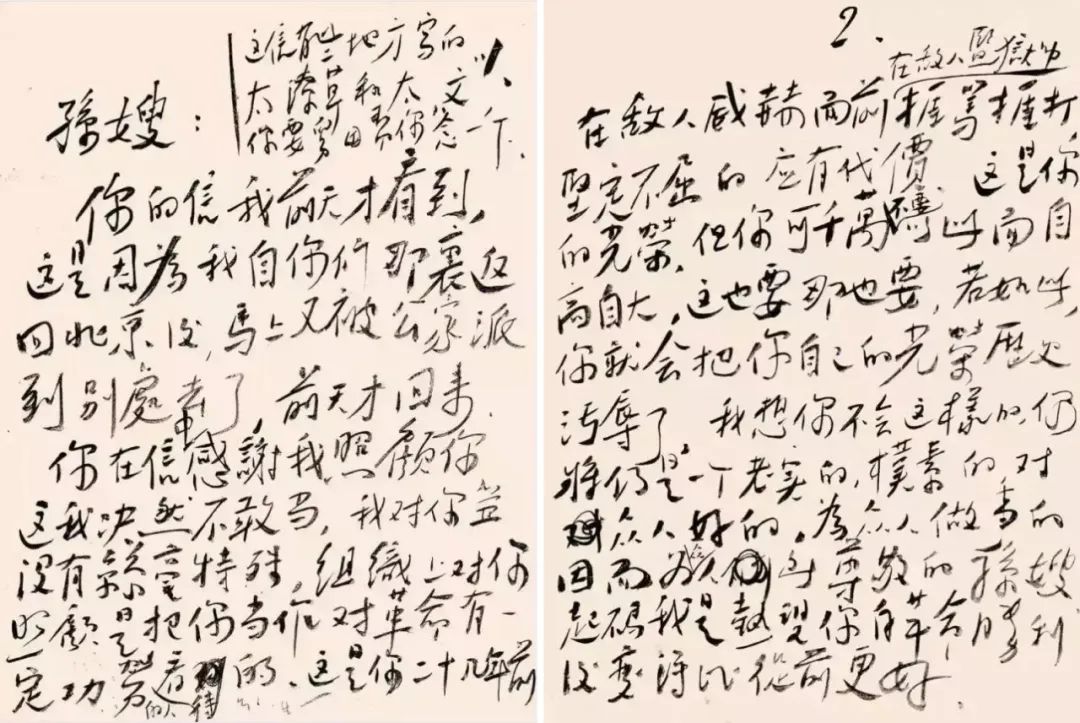 这信有些地方寫的
太潦草和太文
你要 你念一下.
孫嫂：
你的信我前天才看到,
这是因為我自你们那裏返
回北京後,馬上又被公家派
到别處去了,前天才回来.
你在信中感謝我照顧你
这我决然不敢当,我对你並
没有絲毫特殊,組織上对你
照顧是把你当作对革命有一
定功劳的人看待的.这是你二十几年前
2.
在敌人監獄中
在敌人威赫面前捱罵捱打
堅定不屈的应有代價.这是你
的光榮,但你可千萬不要以此而自
高自大,这也要那也要,若如此,
你就会把你自己的光榮歷史
污辱了.我想你不会这樣的,仍
將仍是一个老实的,樸素的对
众人好的,為众人做事的
因而为 所尊敬的孫嫂
起码我是热望你自革命勝利
後变得比從前更好.